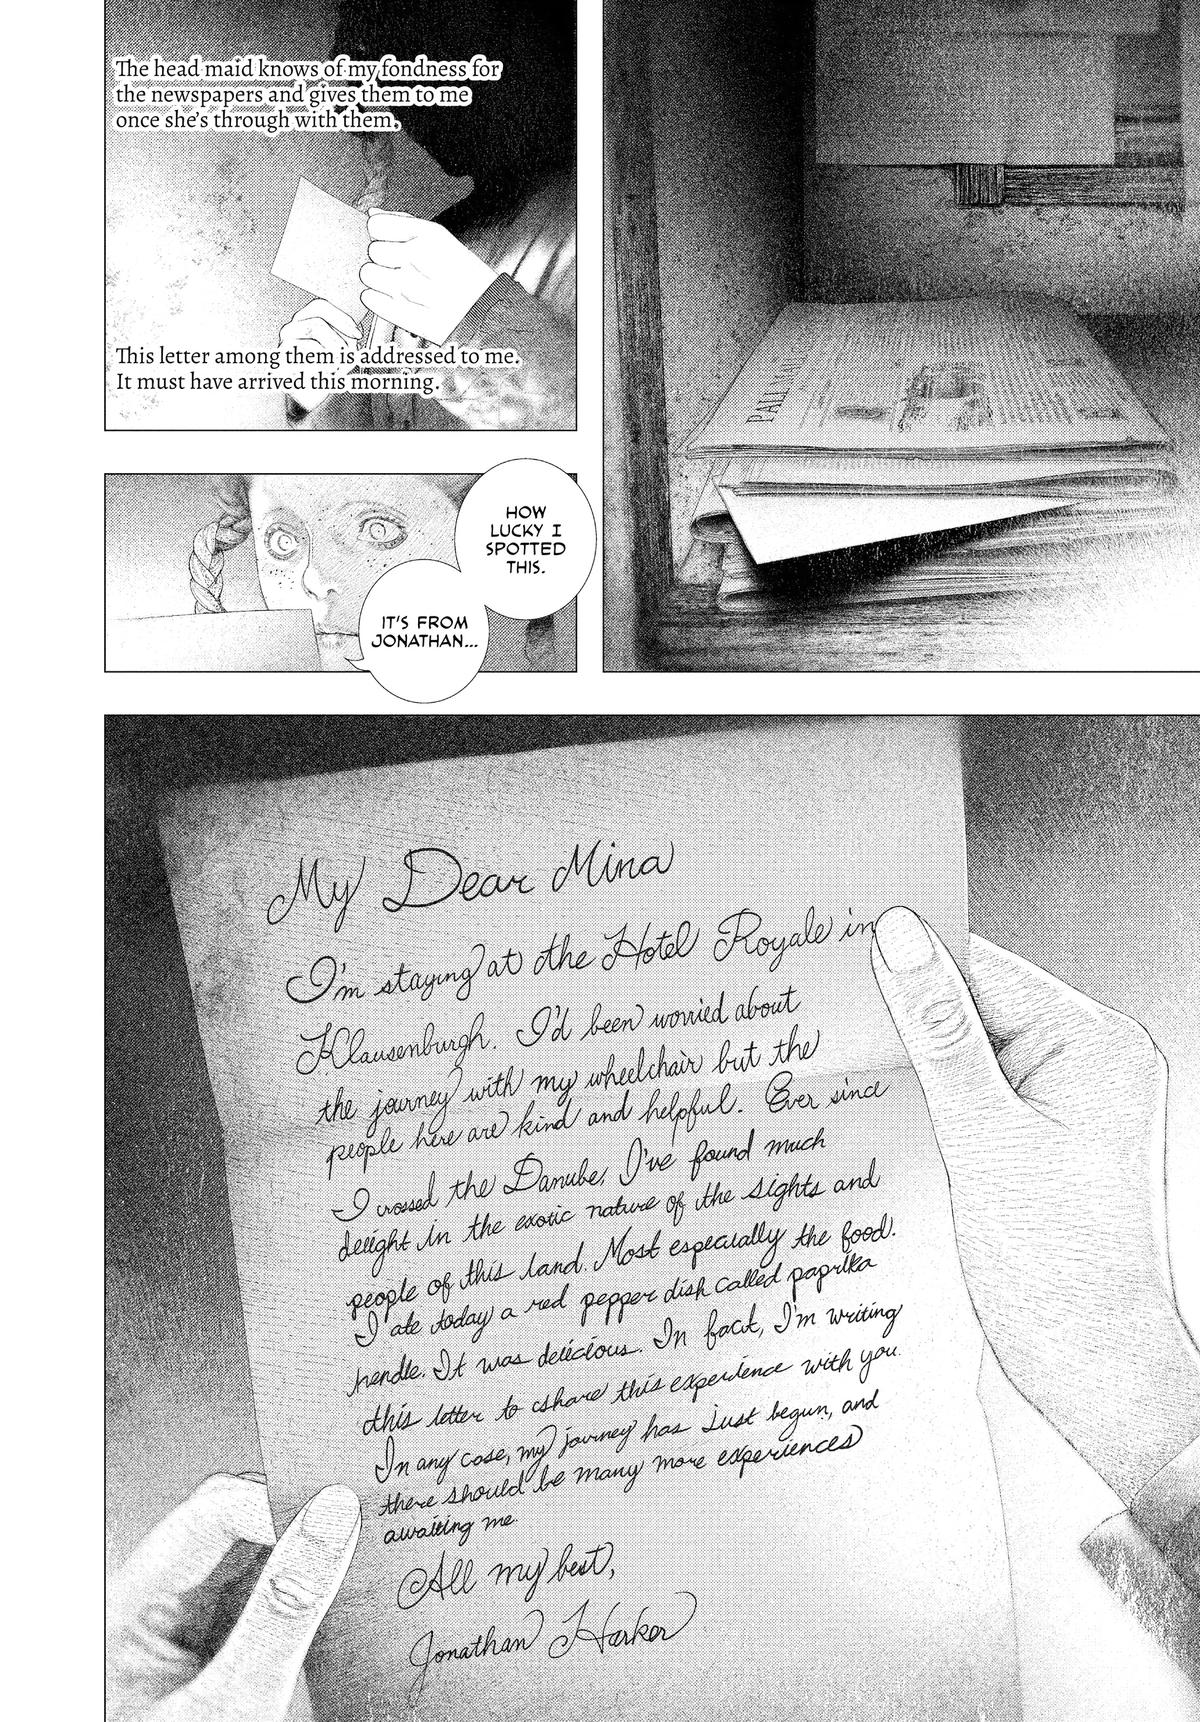 The head maid knows of my fondness for
the newspapers and gives them to me
once she's through with them.
This letter among them is addressed to me.
It must have arrived this morning.
PALL MA
HOW
LUCKY I
SPOTTED
THIS.
IT'S FROM
JONATHAN...
My Dear Mina
I'm staying at the Hotel Royale in
Klausenburgh. I'd been worried about
the journey with my wheelchair but the
people here are kind and helpful. Ever since
I crossed the Danube, I've found much
delight in the exotic nature of the sights and
people of this land. Most especially the food.
I ate today a red pepper dish called paprika
hendle. It was delicious. In fact, I'm writing
this letter to share this experience with you.
In any case, my journey has just begun, and
there should be many more experiences
awaiting me.
All my best,
Jonathan Harker